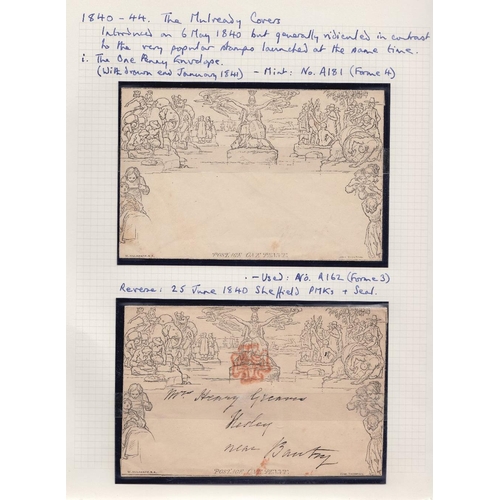 1840-44. The Mulready Covers
Introduced on 6 May 1840 but generally ridiculed in contrast
to the very popular stamps launched at the same time.
i. The One Penny Envelope.
(Withdrawn end January 1841) - Mint: No. A181 (Forme 4)
POSTAGE ONE PENNY.
- Used: No. A162 (Forme 3)
Reverse: 25 June 1840 Sheffield PMKs + Seal.
Mrs Henry Greaves
Hesley
near Bawtry
POSTAGE ONE PENNY.